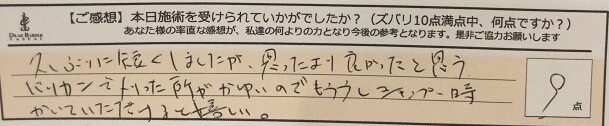 【ご感想】本日施術を受けられていかがでしたか？（ズバリ10点満点中、何点ですか？）
DEAR BARBER
CASUAL
あなた様の率直な感想が、私達の何よりの力となり今後の参考となります。是非ご協力お願いします
久しぶりに短くしましたが、思ったより良かったと思う
バリカンで刈った所がかゆいのでもう少しシャンプー時
かいていただけると嬉しい。
9点